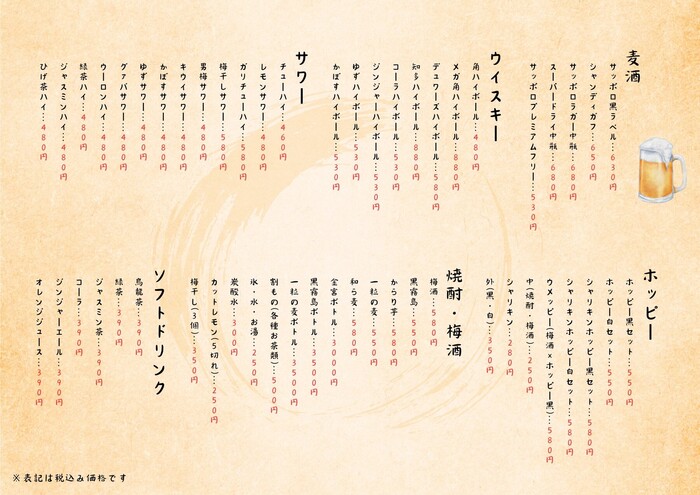 麦酒
サッポロ黒ラベル…630円
シャンディガフ…650円
サッポロラガー中瓶…680円
スーパードライ中瓶…680円
サッポロプレミアムフリー…530円
ウイスキー
角ハイボール…480円
メガ角ハイボール…880円
デュワーズハイボール…580円
知多ハイボール…880円
コーラハイボール…530円
ジンジャーハイボール…530円
ゆずハイボール…530円
かぼすハイボール…530円
サワー
チューハイ…460円
レモンサワー…480円
ガリチューハイ…580円
梅干しサワー…580円
男梅サワー…480円
キウイサワー…480円
かぼすサワー…480円
ゆずサワー…480円
グァバサワー…480円
ウーロンハイ…480円
緑茶ハイ…480円
ジャスミンハイ…480円
ひげ茶ハイ…480円
ホッピー
ホッピー黒セット…550円
ホッピー白セット…550円
シャリキンホッピー黒セット…580円
シャリキンホッピー白セット…580円
ウメッピー(梅酒×ホッピー黒)…580円
中(焼酎・梅酒)…250円
シャリキン…280円
外(黒・白)…350円
焼酎・梅酒
梅酒…580円
黒霧島…550円
からり芋…580円
一粒の麦…550円
和ら麦…580円
金宮ボトル…3000円
黒霧島ボトル…3500円
一粒の麦ボトル…3500円
割もの(各種お茶類)…500円
氷・水・お湯…250円
炭酸水…300円
カットレモン(5切れ)…250円
梅干し(3個)…350円
ソフトドリンク
烏龍茶…390円
緑茶…390円
ジャスミン茶…390円
コーラ…390円
ジンジャーエール…390円
オレンジジュース…390円
※表記は税込み価格です